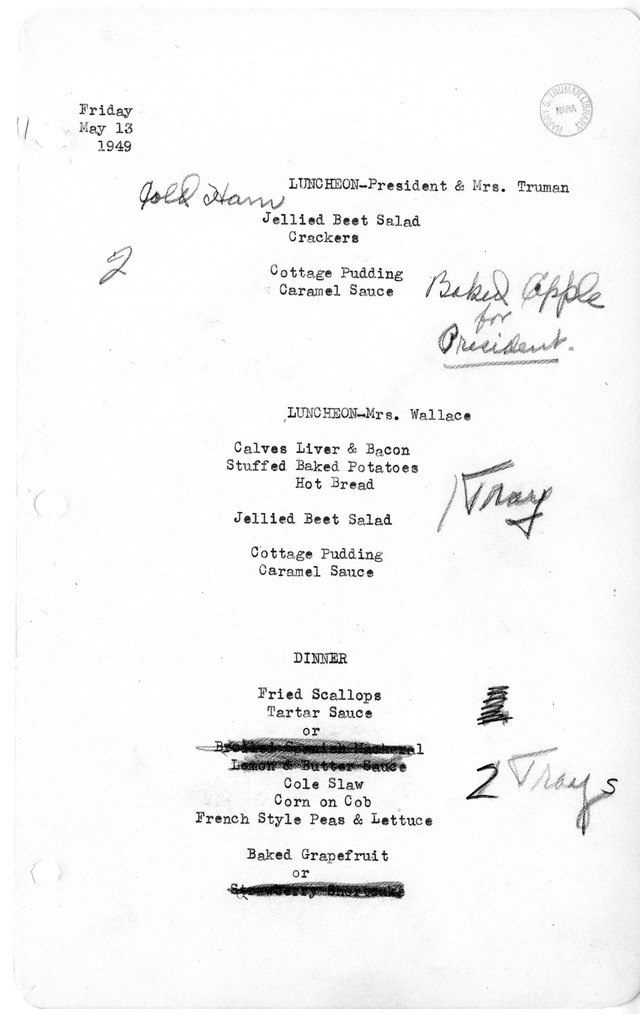 Friday
May 13
1949
HARRY S. TRUMAN LIBRARY
NARA
LUNCHEON-President & Mrs. Truman
Cold Ham
Jellied Beet Salad
Crackers
2
Cottage Pudding
Caramel Sauce
Baked Apple
for
President.
LUNCHEON-Mrs. Wallace
Calves Liver & Bacon
Stuffed Baked Potatoes
Hot Bread
1 Tray
Jellied Beet Salad
Cottage Pudding
Caramel Sauce
DINNER
Fried Scallops
Tartar Sauce
or
Broiled Spanish Mackeral
Lemon & Butter Sauce
Cole Slaw
2 Trays
Corn on Cob
French Style Peas & Lettuce
Baked Grapefruit
or
Strawberry Shortcake